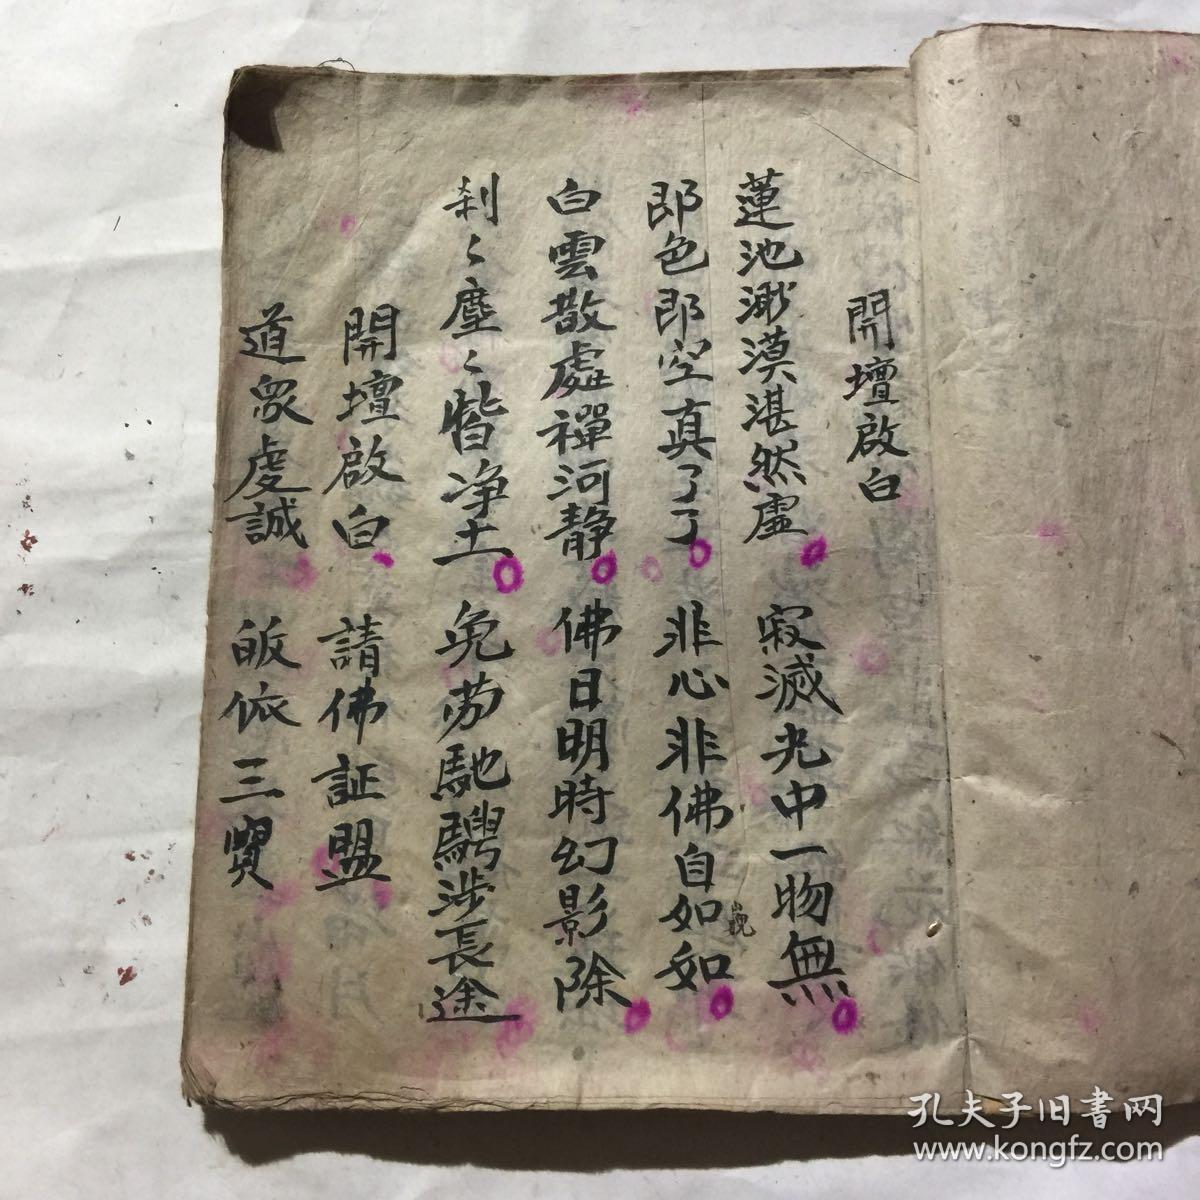 開壇啟白
蓮池渺漠湛然虛 寂滅光中一物無
即色即空真了了 非心非佛自如如
白雲散處禪河静 佛日明時幻影除
刹々塵々皆净土 免劳馳騁涉長途
開壇啟白 請佛証盟
道眾虔誠 皈依三寶
孔夫子旧書网
www.kongfz.com